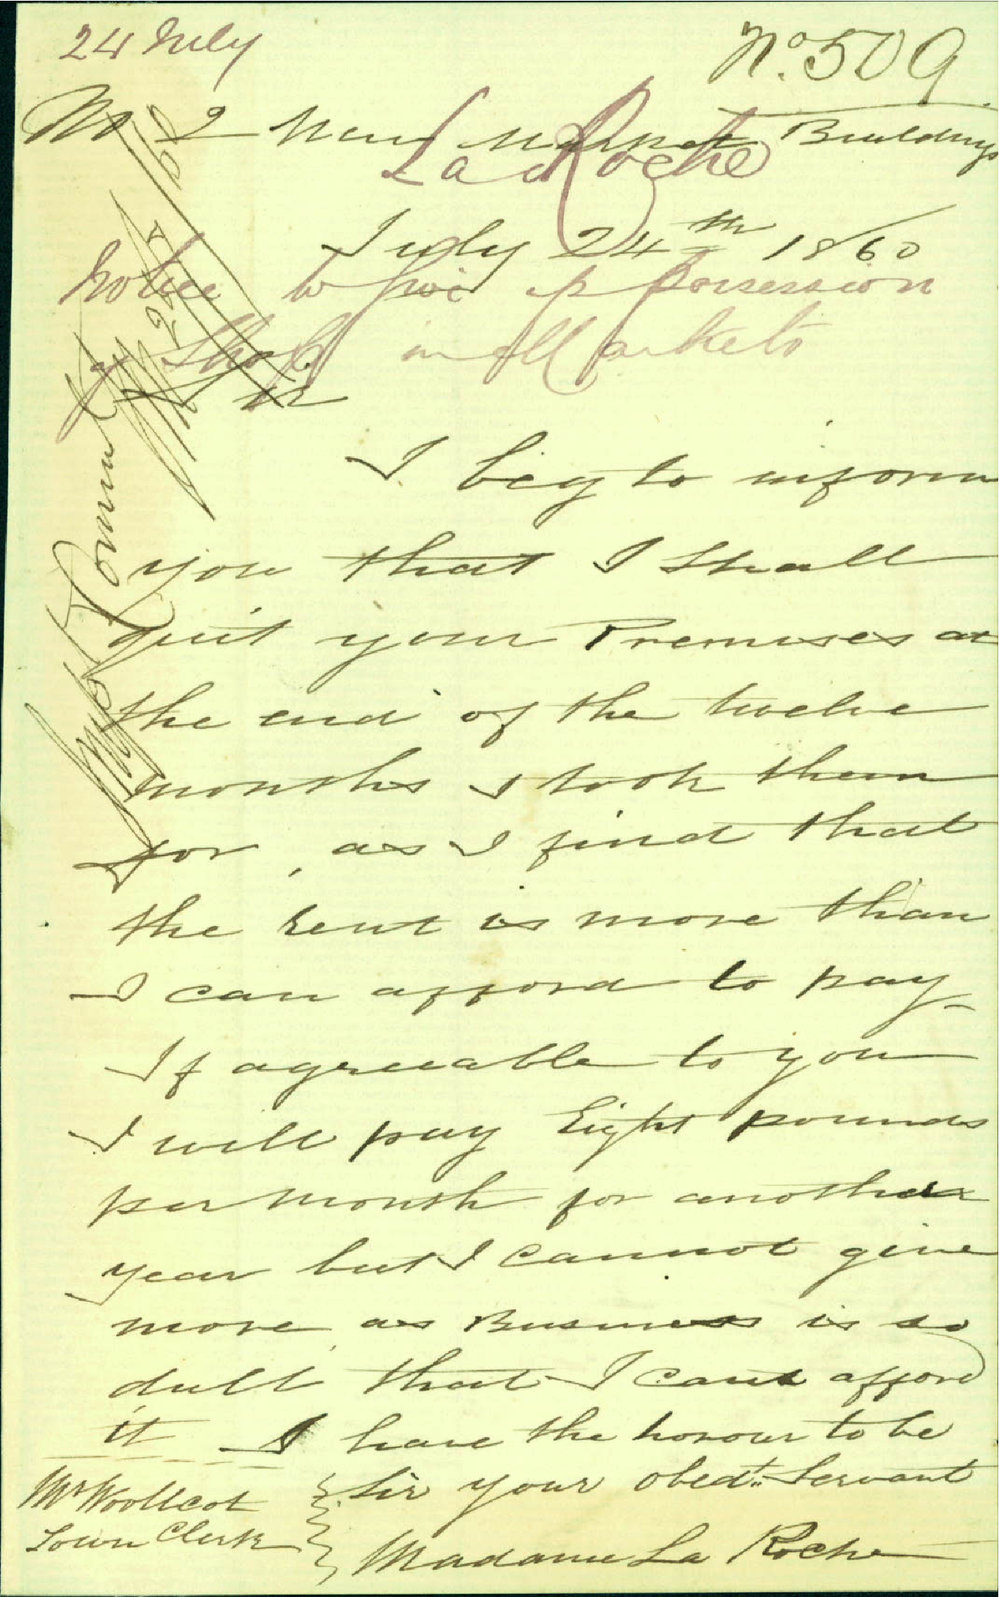 24 July
No. 509
No 2 New Market Buildings
La Roche
July 24th 1860
Notice to give up possession
of Shop in Markets
Sir
I beg to inform
you that I shall
quit your Premises at
the end of the twelve
months I took them
for, as I find that
the rent is more than
I can afford to pay
If agreeable to you
I will pay Eight pounds
per month for another
year but I cannot give
more as Business is so
dull that I cant afford
it I have the honour to be
Sir your obedt. Servant
Madame La Roche
Mr Woollcot
Town Clerk